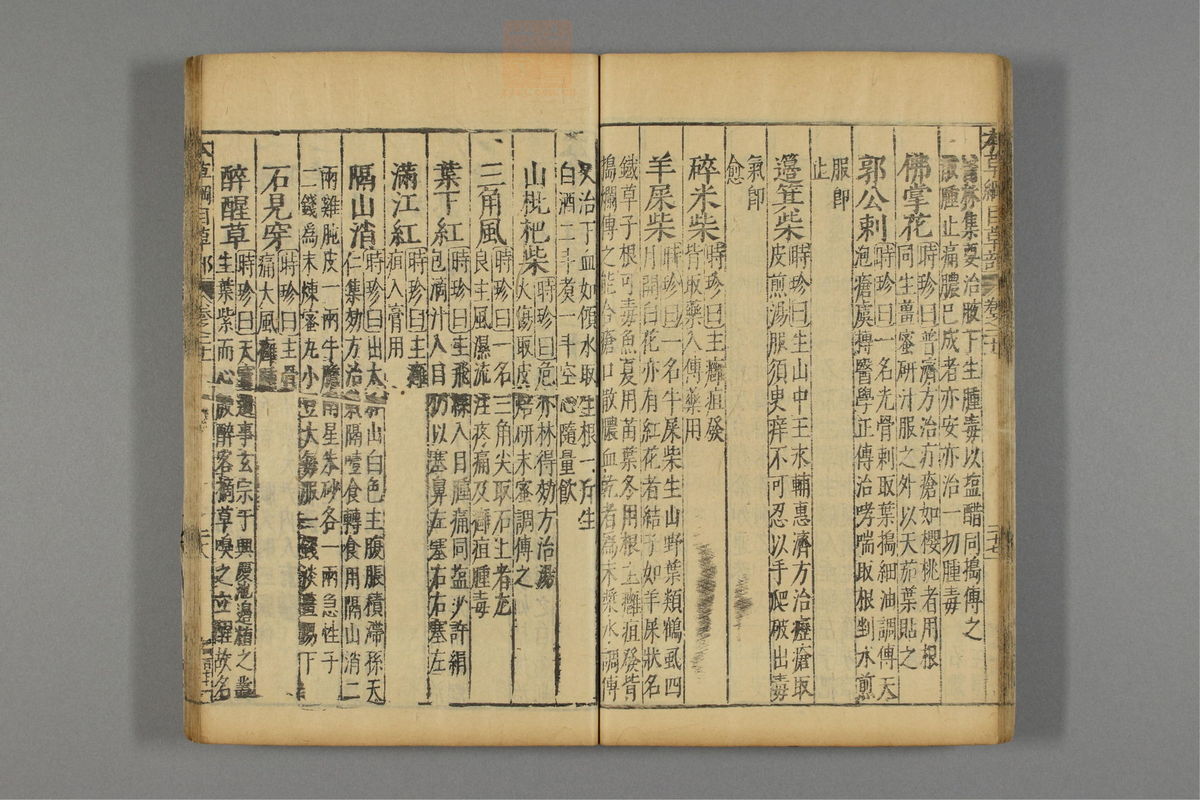 本草綱目草部 卷之二十
善林集要治腋下生腫毒以塩醋同搗傅之
散腫止痛膿已成者亦安亦治一切腫毒
佛掌花
時珍曰普濟方治疔瘡如櫻桃者用根
同生薑蜜研汁服之外以天茄葉貼之
郭公刺
時珍曰一名光骨刺取葉搗細油調傅天
泡瘡虞摶醫學正傳治哮喘取根剉水煎
服即
止
籩箕柴
時珍曰生山中王永輔惠濟方治癧瘡取
皮煎湯服須臾痒不可忍以手爬破出毒
氣即
愈
碎米柴
時珍曰主癰疽發
背取藥入傅藥用
羊屎柴
時珍曰一名牛屎柴生山野葉類鶴虱四
月開白花亦有紅花者結子如羊屎狀名
鐵草子根可毒魚夏用苗葉冬用根主癰疽發背
搗爛傅之能合瘡口散膿血乾者爲末漿水調傅
又治下血如傾水取生根一斤生
白酒二斗煮一斗空心隨量飲
山枇杷柴
時珍曰危亦林得効方治湯
火傷取皮焙研末蜜調傅之
三角風
時珍曰一名三角尖取石上者尤
良主風濕流注疼痛及癰疽腫毒
葉下紅
時珍曰主飛絲入目腫痛同塩少許絹
包滴汁入目仍以塞鼻左塞右右塞左
滿江紅
時珍曰主癰
疽入膏用
隔山消
時珍曰出太和山白色主腹脹積滯孫天
仁集効方治氣隔噎食轉食用隔山消二
兩雞肫皮一兩牛膽南星朱砂各一兩急性子
二錢爲末煉蜜丸小豆大每服一錢淡薑湯下
石見穿
時珍曰主骨
痛大風癰腫
醉醒草
時珍曰天寶遺事玄宗于興慶池邊植之叢
生葉紫而心殷醉客摘草嗅之立醒故名
本草綱目草部 卷之二十